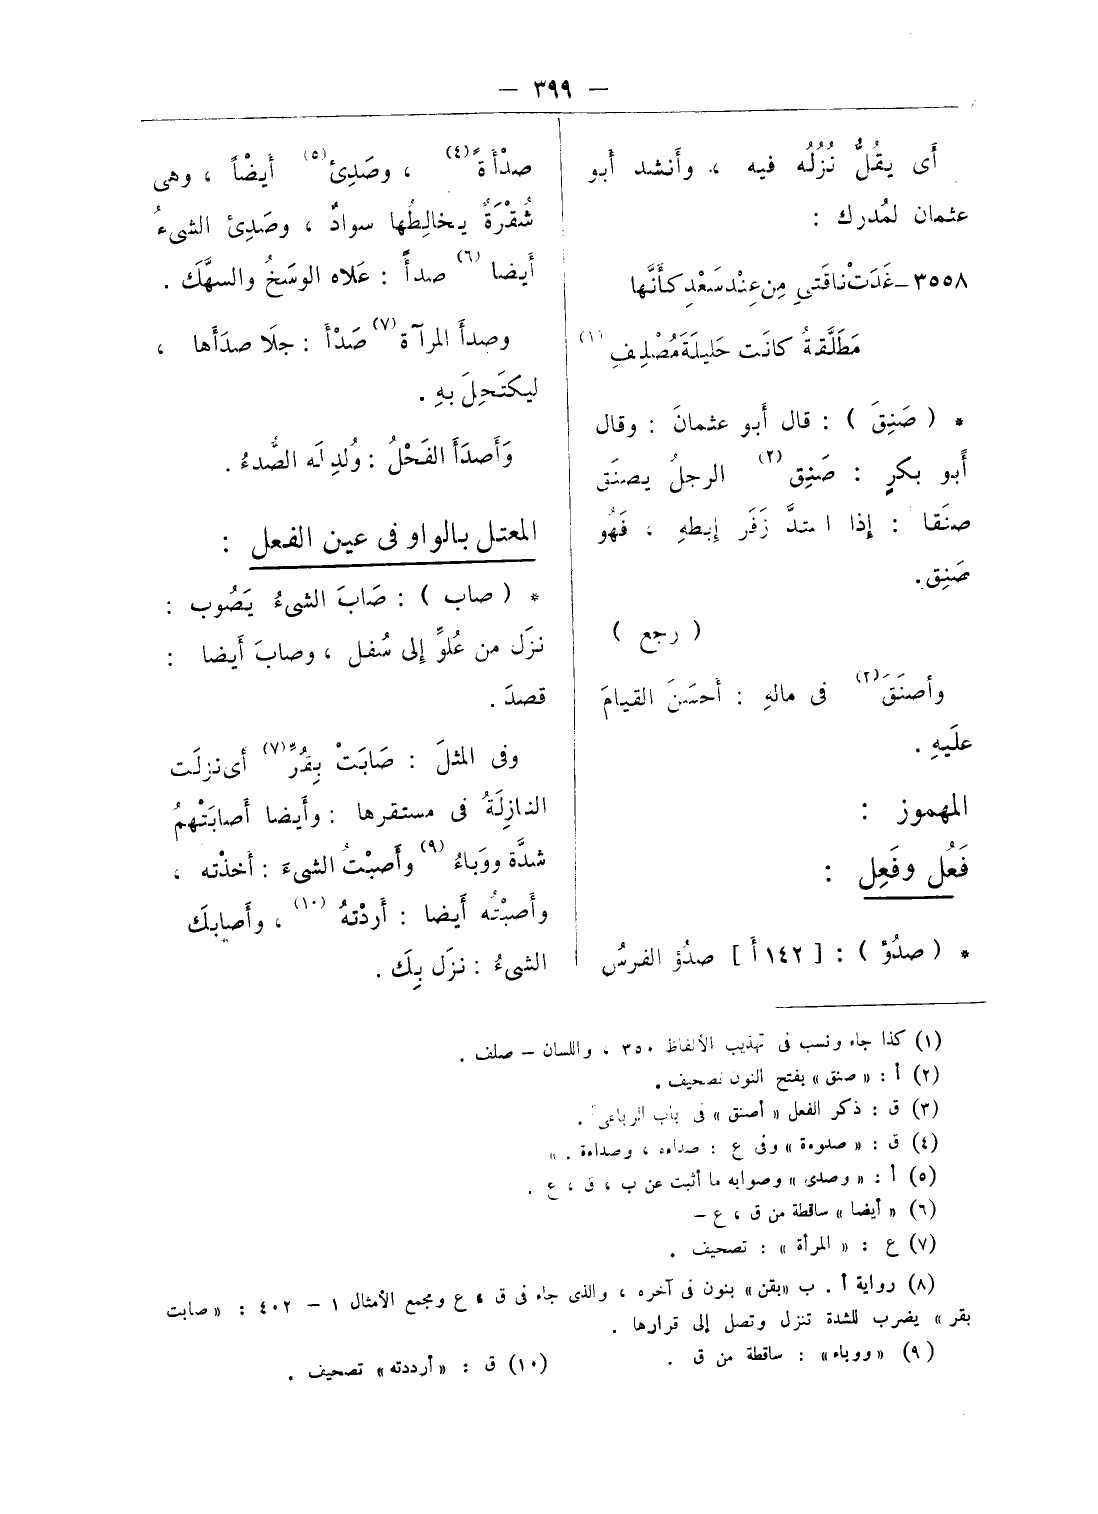 — ٣٩٩ —
أَى يقُلُّ نُزُلُه فيه ، وأَنشد أَبو
عثمان لمُدرك :
٣٥٥٨ – غَدَتْ ناقَتى مِن عِنْد سَعْدٍ كأَنَّها
مَطَلَّقةٌ كانَت حَليلَةَ مُصْلِفِ (١)
* ( صَنِقَ ) : قال أَبو عثمانَ : وقال
أَبو بكرٍ : صَنِق (٢) الرجلُ يصنَق
صنَقا : إِذا اشتدَّ زَفَر إبطهِ ، فَهُو
صَنِق.
( رجع )
وأَصنَقَ (٣) فى مالهِ : أحسَنَ القيامَ
علَيهِ .
المهموز :
فَعُل وفَعِل :
* ( صدُؤ ) : [ ١٤٢ أَ ] صدُؤ الفرسُ
صدْأَةً (٤) ، وصَدِئ (٥) أَيضْاً ، وهى
شُقْرَةٌ يخالِطُها سوادٌ ، وصَدِئ الشىءُ
أَيضا (٦) صدأً : عَلاه الوسَخُ والسهَّكَ .
وصدأَ المرآة (٧) صَدْأَ : جلَا صدَأها ،
ليكتَحِلَ بهِ .
وَأَصدَأَ الفَحْلُ : وُلدِ لَه الصُّدءُ .
المعتل بالواو فى عين الفعل :
* ( صاب ) : صَابَ الشىءُ يَصُوب :
نزَل من عُلوٍّ إِلى سُفل ، وصابَ أَيضا :
قصدَ .
وفى المثلَ : صَابَتْ بِقُرٍّ (٧) أَى نزلَت
النازِلَةُ فى مستقرها : وأَيضا أَصابَتْهمُ
شدَّة ووَباءُ (٩) وأَصبْتُ الشىءَ : أخذْته ،
وأَصبْتُه أَيضا : أَردْتهُ (١٠) ، وأَصابكَ
الشىءُ : نزَل بِكَ .
(١) كذا جاء ونسب فى تهذيب الألفاظ ٣٥٠ ، واللسان – صلف .
(٢) أ : « صنق » بفتح النون تصحيف .
(٣) ق : ذكر الفعل « أصنق » فى باب الرباعى .
(٤) ق : « صدوءة » وفى ع : صداءه ، وصداءة . »
(٥) أ : « وصدى » وصوابه ما أثبت عن ب ، ق ، ع .
(٦) « أيضا » ساقطة من ق ، ع –
(٧) ع : « المرأة » : تصحيف .
(٨) رواية أ . ب «بقن» بنون فى آخره ، والذى جاء فى ق ، ع ومجمع الأمثال ١ – ٤٠٢ : « صابت
بقر » يضرب للشدة تنزل وتصل إلى قرارها .
(٩) «ووباء» : ساقطة من ق .
(١٠) ق : «أرددته» تصحيف .